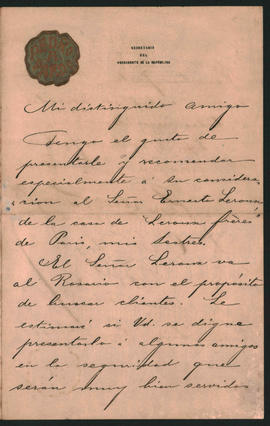 SECRETARIO
DEL
PRESIDENTE DE LA REPÚBLICA
Mi distinguido amigo
Tengo el gusto de
presentarle y recomendar
especialmente á su considera-
cion al Señor Ernesto
de la casa de " frères"
de Paris, mis sastres.
El Señor va
al Rosario con el propósito
de buscar clientes. Le
estimaré si Vd. se digna
presentarlo á algunos amigos
en la seguridad que
serán muy bien servidos